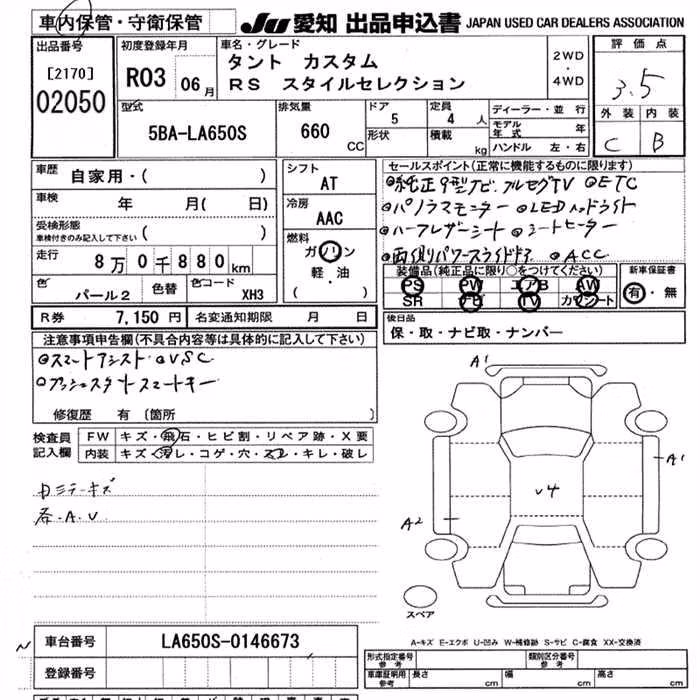 車内保管・守衛保管
JU 愛知 出品申込書 JAPAN USED CAR DEALERS ASSOCIATION
出品番号 [2170] 02050
初度登録年月 R03 06月
車名・グレード タント カスタム
RS スタイルセレクション
2WD・4WD
評価点 3.5
外装 内装
C B
型式 5BA-LA650S
排気量 660 CC
ドア 5
定員 4 人
形状 積載 kg
ディーラー・並行
モデル年式 年
ハンドル 左・右
車歴 自家用・( )
車検 年 月( 日)
受検形態 ( )
車検付きのみ記入して下さい
走行 8万0千880km
色 パール2 色替 色コード XH3
シフト AT
冷房 AAC
燃料 ガソリン
軽・油
( )
セールスポイント(正常に機能するものに限ります)
◎純正9型ナビ フルセグTV ◎ETC
◎パノラマモニター ◎LEDヘッドライト
◎ハーフレザーシート ◎シートヒーター
◎両側パワースライドドア ◎ACC
装備品(純正品に限り○をつけてください)
PS PW エアB AW
SR ナビ TV カワシート
新車保証書
有・無
R券 7,150円 名変通知期限 月 日
後日品
保・取・ナビ取・ナンバー
注意事項申告欄(不具合内容等は具体的に記入して下さい)
◎スマートアシスト ◎VSC
◎プッシュスタート スマートキー
修復歴 有 (箇所 )
検査員記入欄
FW キズ・飛石・ヒビ割・リペア跡・X要
内装 キズ・汚レ・コゲ・穴・スレ・キレ・破レ
内ミラーキズ
各.A.U
A1
A1
A2
U4
スペア
A-キズ E-エクボ U-凹み W-補修跡 S-サビ C-腐食 XX-交換済
車台番号 LA650S-0146673
登録番号
形式指定番号 参考
類別区分番号 参考
車庫証明用 参考 長さ cm 幅 cm 高さ cm